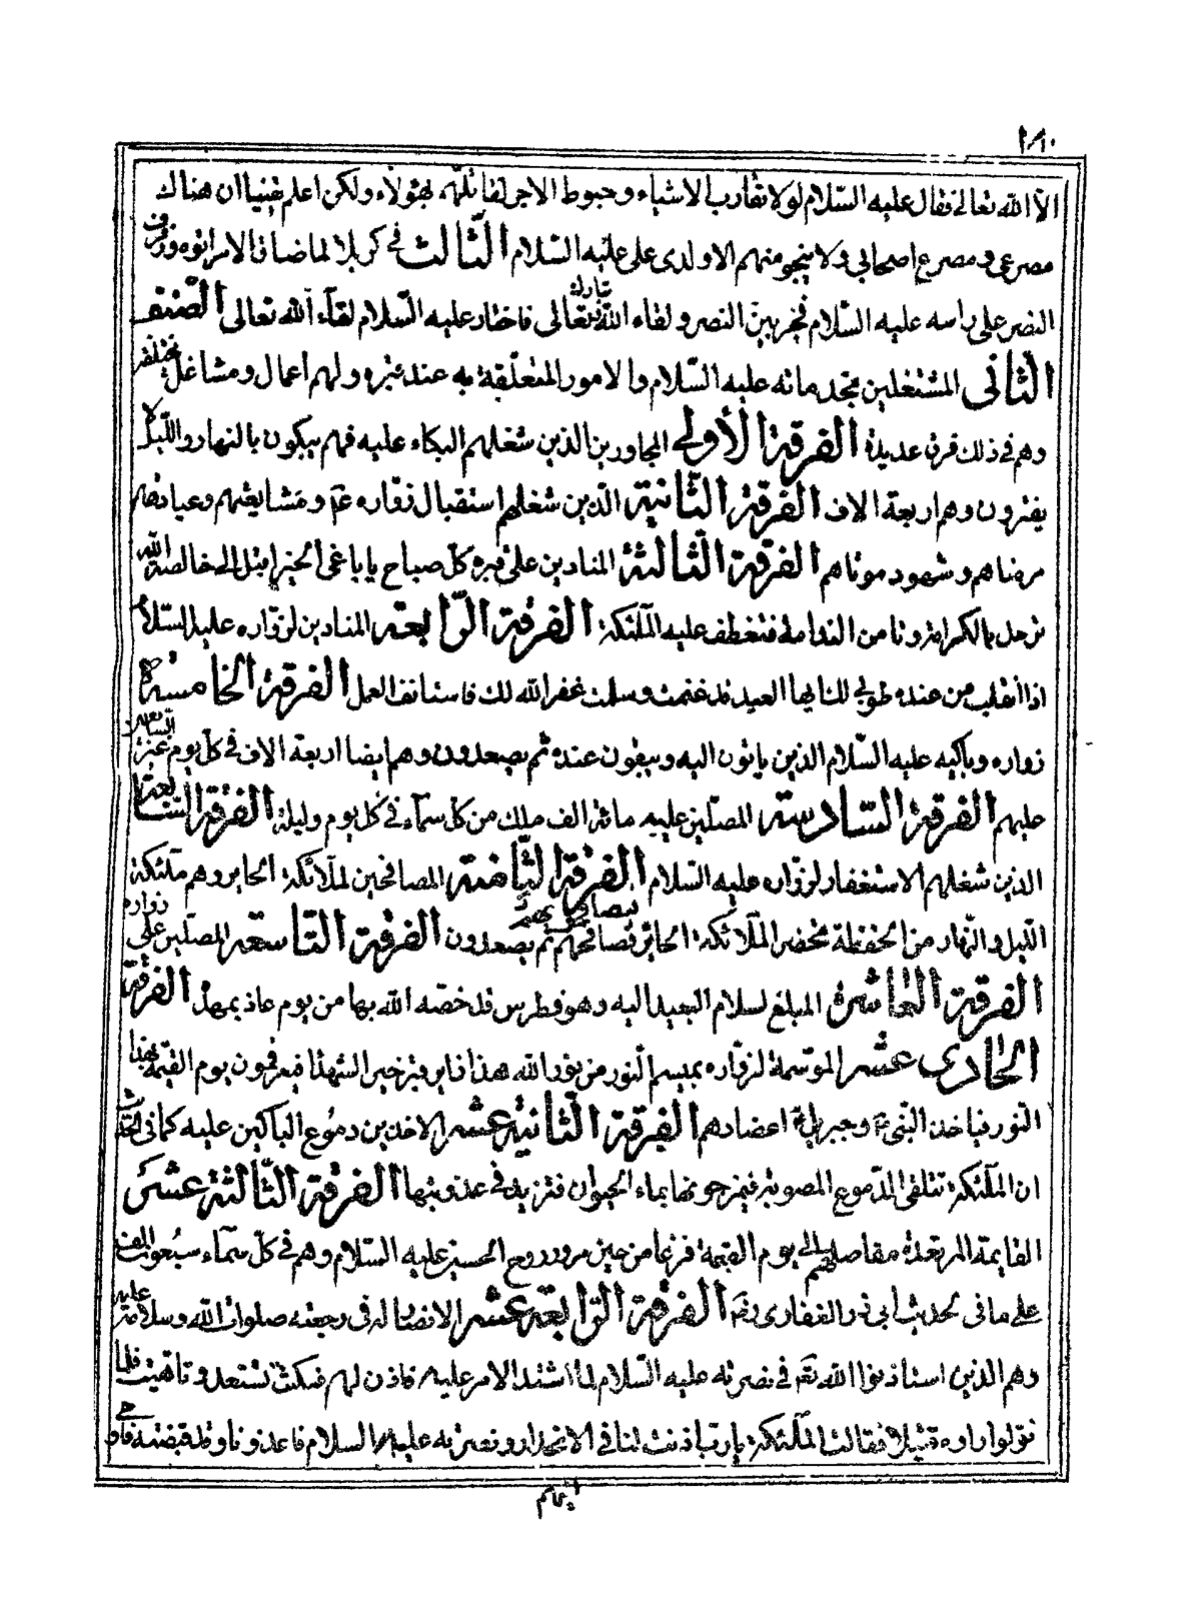 ١٨٠
الا الله تعالى فقال عليه السّلام لولا تقارب الاشياء وحبوط الاجر لقاتلتهم بهؤلاء ولكن اعلم يقينا ان هناك
مصرعى ومصرع اصحابى ولا ينجو منهم الا ولدى على عليه السّلام الثّالث فى كربلا لما ضاق الامر اتوه ورفرف
النصر على راسه عليه السّلام فخيّر بين النصر ولقاء الله تبارك وتعالى فاختار عليه السّلام لقاء الله تعالى الصّنف
الثّانى المشتغلين بخدماته عليه السّلام والامور المتعلّقة به عند قبره ولهم اعمال ومشاغل مختلفة
وهم فى ذلك فرق عديدة الفرقة الأولى المجاورين الذين شغلهم البكاء عليه فهم يبكون بالنهار والليل لا
يفترون وهم اربعة الاف الفرقة الثّانية الذين شغلهم استقبال زوّاره ع ومشايعتهم وعيادة
مرضاهم وشهود موتاهم الفرقة الثّالثة المنادين على قبره كلّ صباح يا باغى الخير اقبل الى خالصة الله
ترحل بالكرامة وتامن الندامة فتعطف عليه الملئكة الفرقة الرّابعة المنادين لزوّاره عليه السّلام
اذا انقلب من عنده طوبى لك ايها العبد قد غنمت وسلمت غفر الله لك فاستانف العمل الفرقة الخامسة
زواره وباكيه عليه السّلام الذين ياتون اليه ويبقون عنده ثم يصعدون وهم ايضا اربعة الاف فى كلّ يوم غير
عليهم الفرقة السّادسة المصلّين عليه مائة الف ملك من كل سمآء فى كل يوم وليلة الفرقة السّابعة
الذين شغلهم الاستغفار لزواره عليه السّلام الفرقة الثّامنة المصافحين لملائكة الحاير وهم ملئكة
الليل والنهار من الحفظة تحضر الملائكة الحاير فتصافحهم ثم يصعدون الفرقة التّاسعة المصلّين على زواره
الفرقة العاشرة المبلغ لسلام البعيد اليه وهو فطرس قد خصّه الله بها من يوم عاذ بمهده الفرقة
الحادى عشر الموسّمة لزوّاره بميسم النور من نور الله هذا زاير قبر خير الشهداء فيعرفون يوم القيمة بهذا
النور فياخذ النّبى ص وجبريل ع اعضادهم الفرقة الثّانية عشر الاخذين دموع الباكين عليه كما فى الحديث
ان الملئكة تتلقى الدّموع المصبوبة فيمزجونها بماء الحيوان فتزيد فى عذوبتها الفرقة الثّالثة عشر
القايمة المرتعدة مفاصلهم الى يوم القيمة فزعا من حين مرور روح الحسين عليه السّلام وهم فى كلّ سمآء سبعون الف
على ما فى الحديث ابى ذر الغفارى رض الفرقة الرّابعة عشر الانصار له فى رجعته صلوات الله وسلامه عليه
وهم الذين استاذنوا الله تع فى نصرته عليه السّلام لما اشتد الامر عليه فاذن لهم فمكثت تستعد وتاهبت فلما
نزلوا راوه قتيلا فقالت الملئكة يا رب اذنت لنا فى الانحدار ونصرته عليه السلام فاعذونا وقد قبضته فاوحى
اليهم